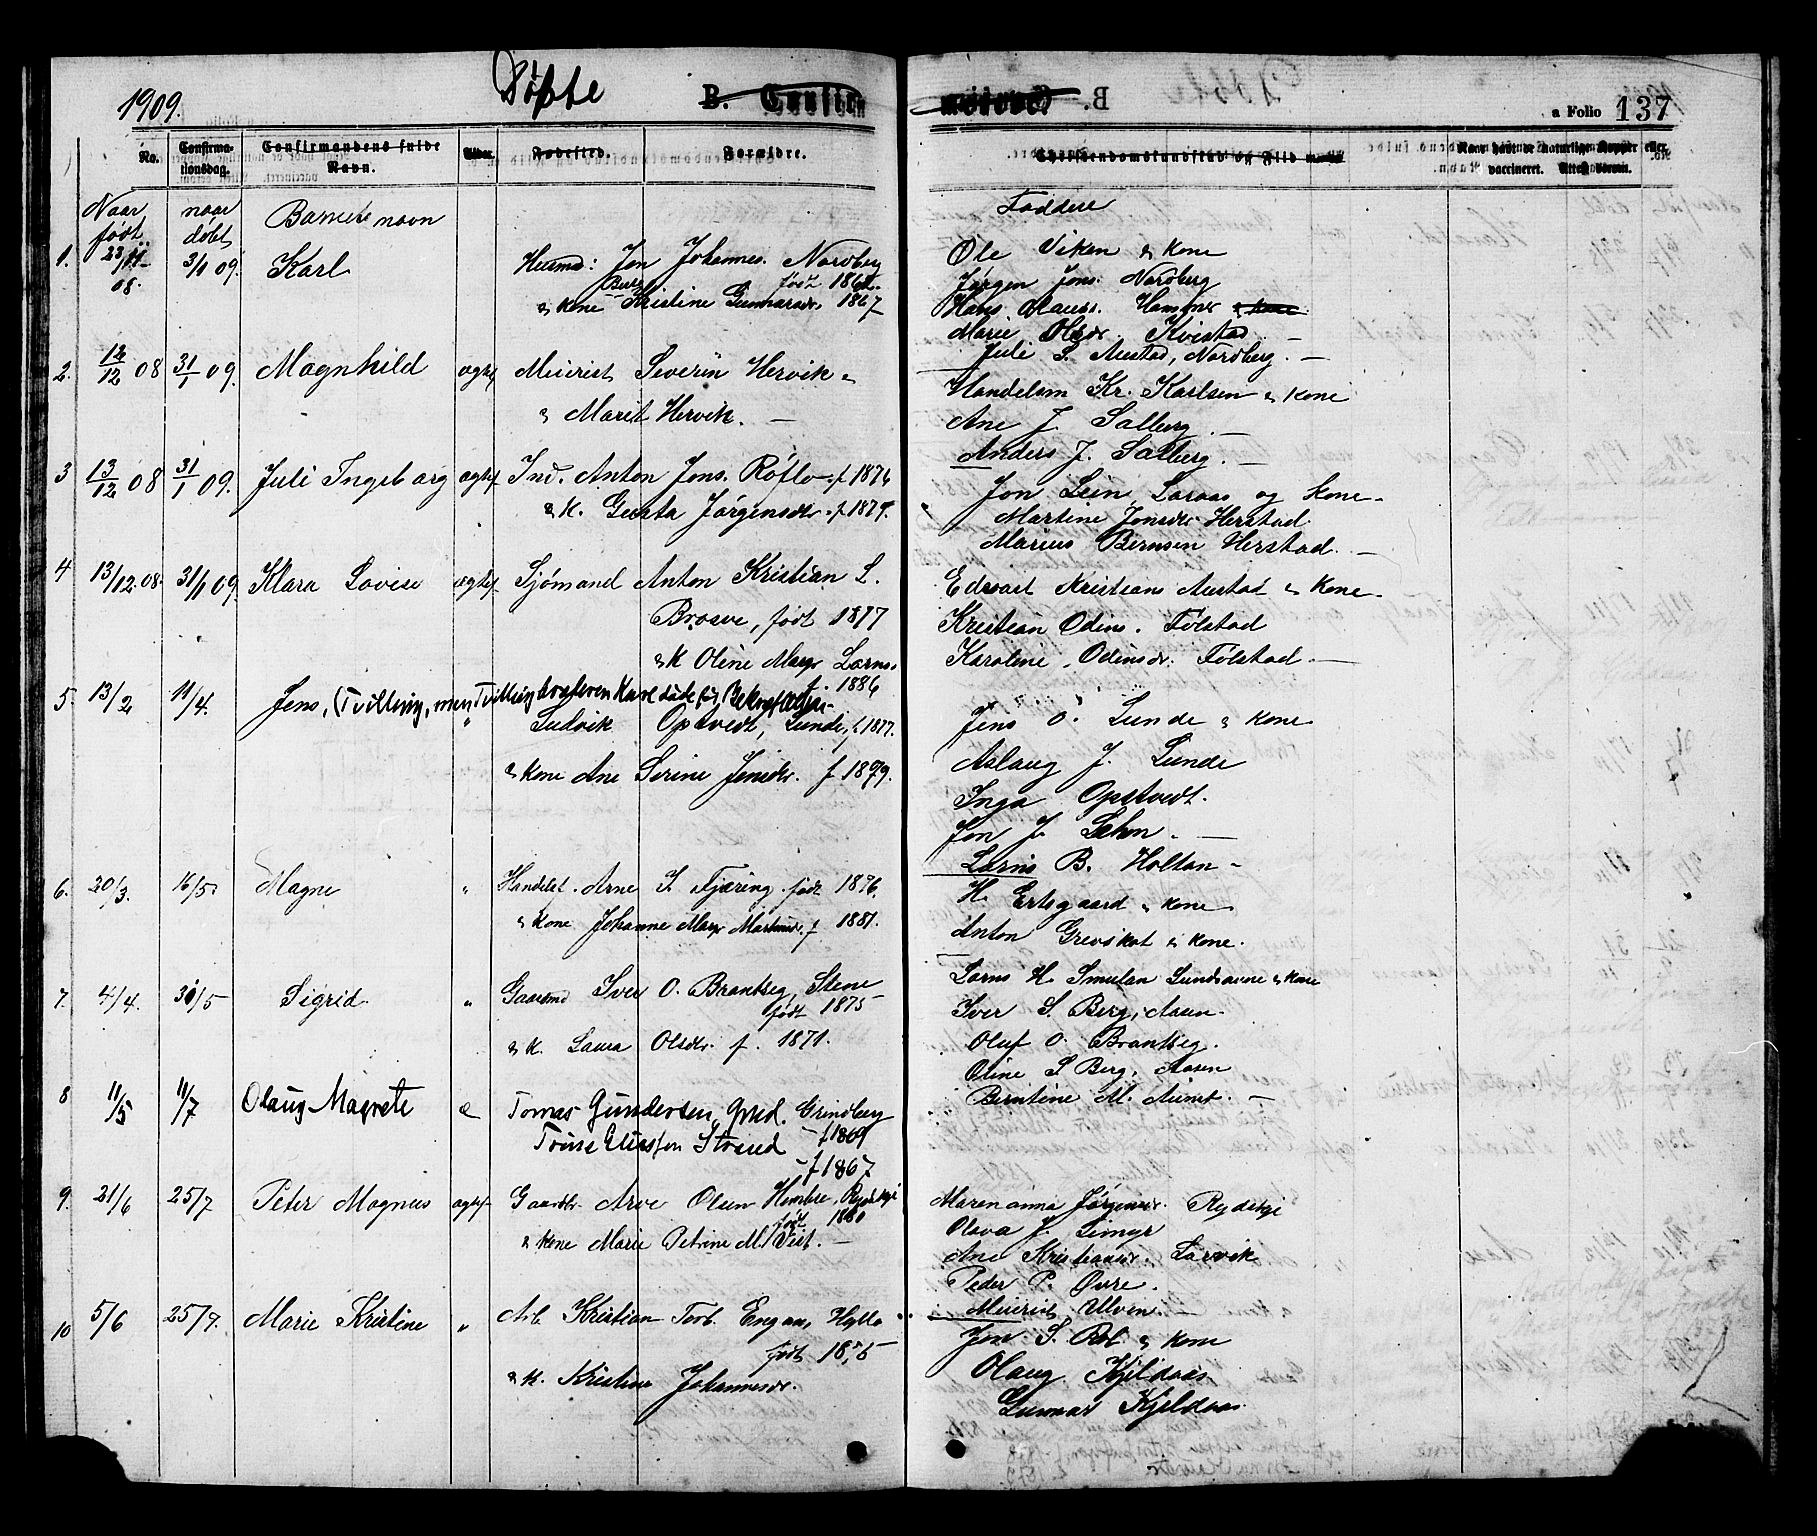 1909. Døpte B. Confirm a Folio 137
No. Confirmationsdag. Confirmandens fulde Navn. Alder. Fødested. Forældre.
Christendomskundskab og Flid
Naar født naar døbt Barnets navn Faddere
1. 23/11 08. 3/1 09. Karl Husmd: Jon Johannes. Nordberg
født 186
& kone Kristine Gunnarsdr. 1867
Ole Viken & kone
Jørgen Jons. Nordberg
Hans Hammer & kone
Marie Olsdr. Kvistad
Juli S. Austad, Nordberg. —
2. 12/12 08 31/1 09. Magnhild ægtef Meierist Severin Hervik
& Marit Hervik. —
Handelsm Kr. Karlsen & kone
Ane J. Salberg. —
Anders J. Salberg. —
3 13/12 08 31/1 09. Juli Ingeborg ægtef. Ind. Anton Jons. Røflo f 1876
& K. Gusta Jørgensdr. f 1879.
Jon Lein Saraas og Kone
Martine Jonsdr Herstad
Marius Bernsen Herstad. —
4 13/12 08. 31/1 09. Klara Lovise ægtef. Sjømand Anton Kristian L.
Brosve, født 1877
& K Oline Margr Lorns.
f. 1886
Edvart Kristians Austad & Kone
Kristian Odins. Følstad
Karoline Odinsdr. Følstad. —
5. 13/2 11/4. Jens, (Tvilling, men Tvillingbroderen Karl døde før Bekræftelsen
" Ludvik Opstvedt, Lunde, f. 1877.
& kone Ane Serine Jensdr. f 1879.
Jens O. Lunde & kone
Aslaug J. Lunde
Inga Opstvedt.
Jon J. —
Lorns B. Holtan —
6. 20/3. 16/5 Magne " Handelsf. Arne J. Fjæring. født 1876.
& kone Johanne Margr Martinsdr. f 1881.
H. Ertsgaard & kone
Anton Grevskot & kone.
7. 4/4. 30/5 Sigrid " Gaardmd Iver O. Brantseg, Stene
født 1875
& K. Laura Olsdr. f. 1871.
Lorns H. Smulan Sundsaune & kone
Iver S. Berg, Aasen.
Oluf O. Brantseg.
Oline S Berg, Aasen
Berntine M. Aunet. —
8 11/5 11/7 Olaug Magrete e Tomas Gundersen, Grindberg
f 1869
Strand
f 1867
9. 21/6 25/7 Peter Magnus ægtef Gaardbr. Arve Olsen Hembre, Rydskje
født 1880
& kone Marie Petrine M. Veit. —
Maren anna Jørgensdr. Rydskje
Olava J. Limyr
Ane Kristiansdr. Larvik
Peder P. Øvre.
Meierist Ulven. —
10 5/6 25/7. Marie Kristine " Arb. Kristian Torb. Engan, Hylla
født 1875
& K. Kristine Johannesdr.
Jon S. Rol & kone
Olaug Kjeldaas
Gunnar Kjeldaas